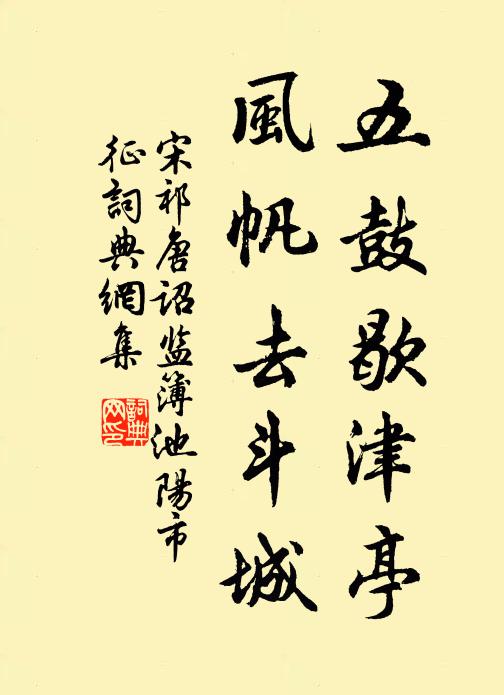 五鼓歇津亭
風帆去斗城
宋祁唐詔监簿池陽市
征詞典網集
詞典
网印